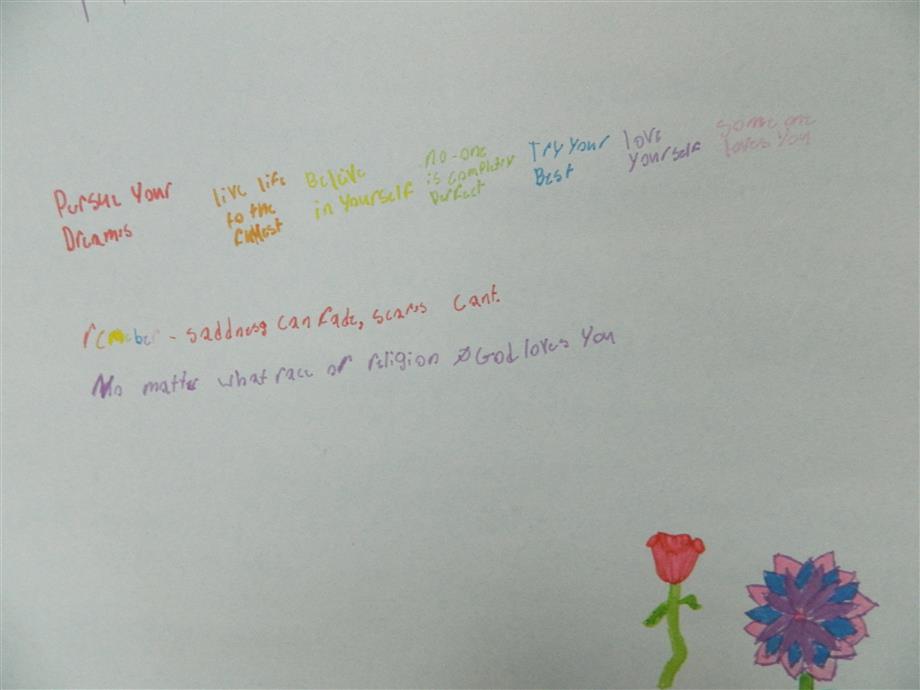 Pursue Your
Dreams
live life
to the
fullest
Beleive
in Yourself
no-one
is completly
Perfect
Try Your
Best
love
yourself
Someone
loves You
remember - saddness can fade, scares cant.
No matter what race or religion God loves You